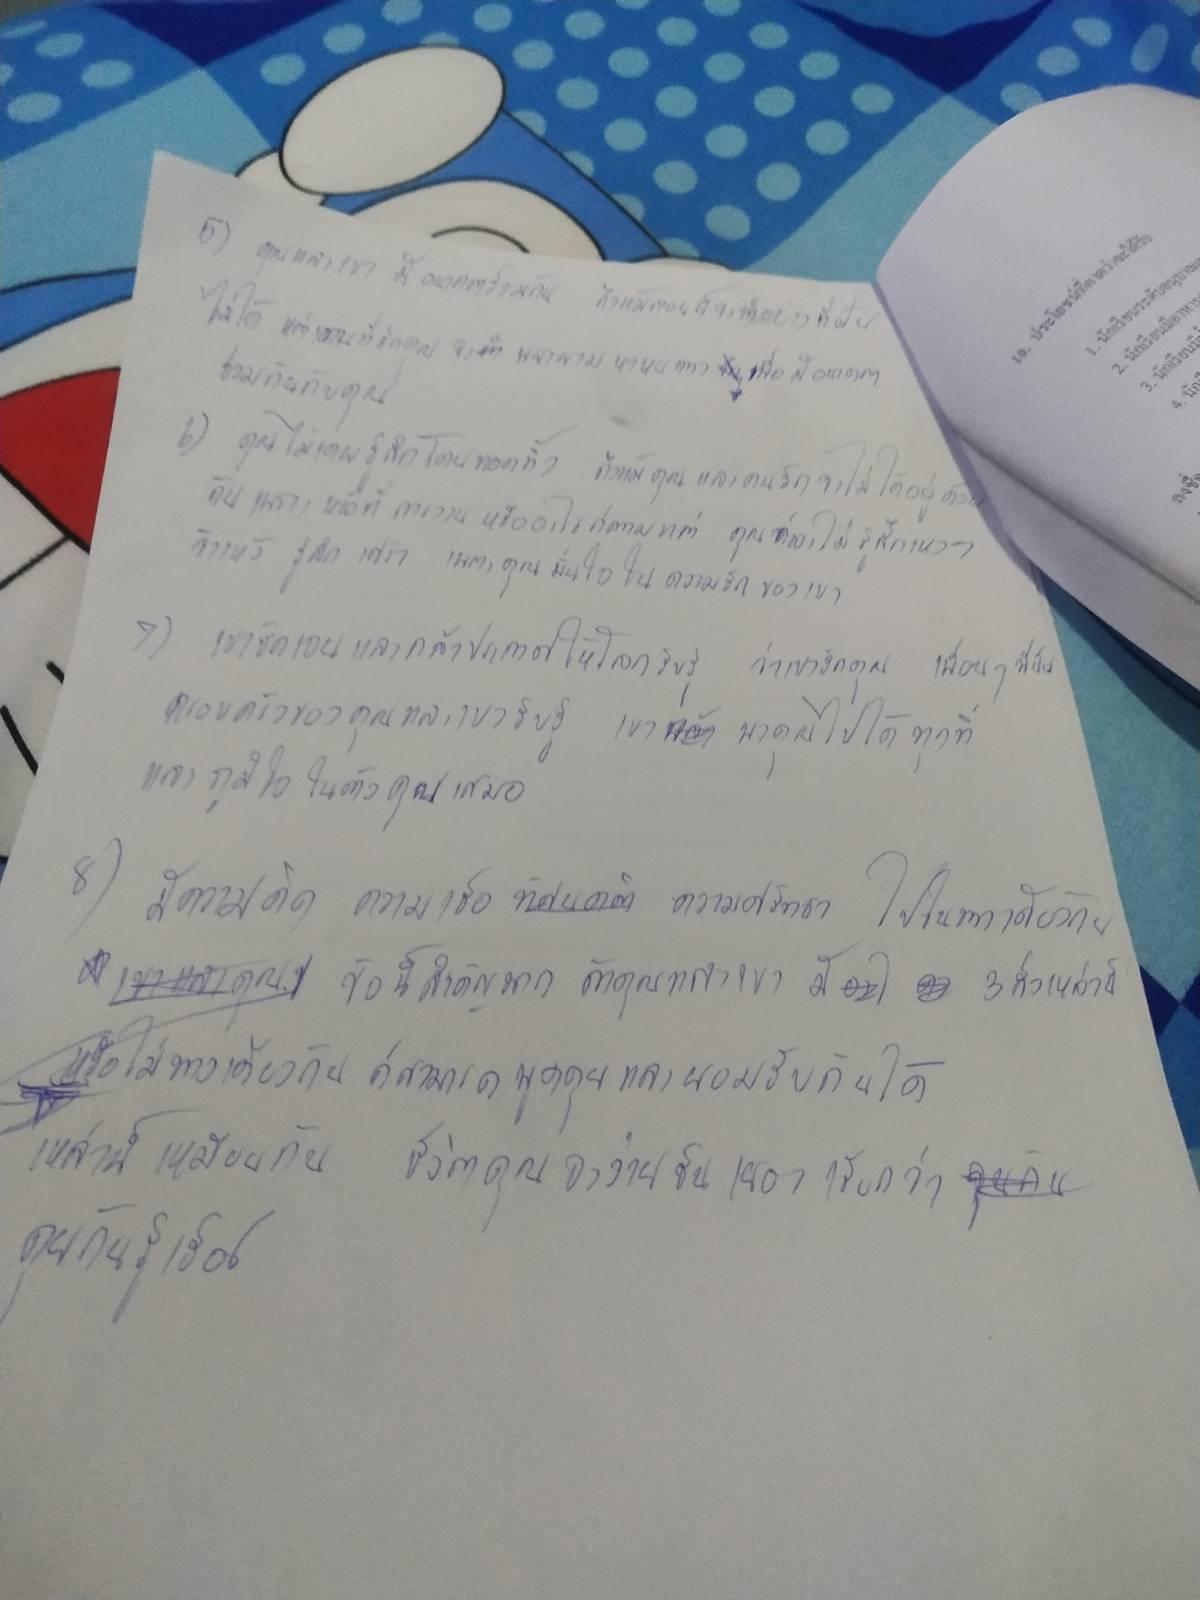 5) คุณและเขา มี อนาคตร่วมกัน ถึงแม้ตอนนี้จะทำอย่างที่ฝัน
ไม่ได้ แต่เขาคนที่รักคุณ จะ พยายาม หาหนทาง เพื่อ มีอนาคต
ร่วมกันกับคุณ
6) คุณไม่เคยรู้สึกโดนทอดทิ้ง ถึงแม้คุณและคนรักจะไม่ได้อยู่ด้วย
กัน เพราะ หน้าที่ การงาน หรืออะไรก็ตามแต่ คุณก็จะไม่รู้สึกเหงา
รู้สึก เศร้า เพราะคุณมั่นใจใน ความรัก ของเขา
7) เขาชัดเจน และกล้าประกาศให้โลกรับรู้ ว่าเขารักคุณ เพื่อนๆ
ครอบครัวของคุณและเขารับรู้ เขา พาคุณไปได้ทุกที่
และ ภูมิใจ ในตัวคุณเสมอ
8) มีความคิด ความเชื่อ ทัศนคติ ความศรัทธา ไปในทางเดียวกัน
เขาและคุณ ข้อนี้สำคัญมาก ถ้าคุณและเขา มี 3 สิ่งเหล่านี้
หรือไม่ทางเดียวกัน ก็สามารถ พูดคุยและยอมรับกันได้
เหล่านี้ เหมือนกัน ชีวิตคุณ จะง่ายขึ้น เยอะ เรียกว่า คุยกัน
คุยกันรู้เรื่อง
10. ประโยชน์ที่คาดว่าจะได้รับ
1. นักเรียนระดับอนุบาล
2. นักเรียนมีอาหาร
3. นักเรียน
4.
ลงชื่อ